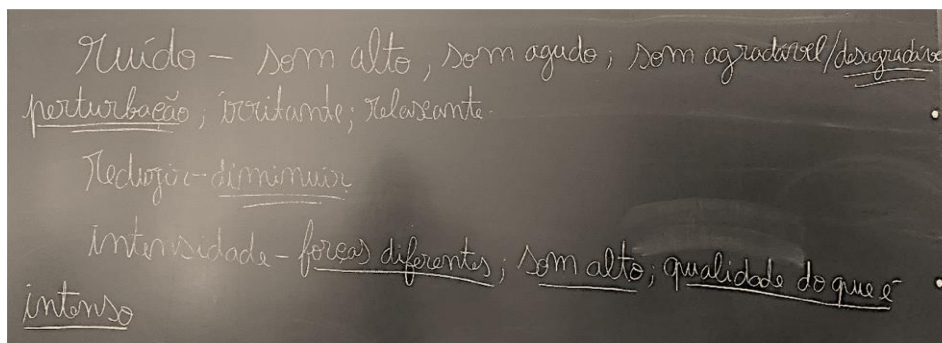 Ruído - som alto, som agudo; som agradável/desagradáve
perturbação; irritante; relaxante.
Reduzir - diminuir
intensidade - forças diferentes; som alto; qualidade do que é
intenso